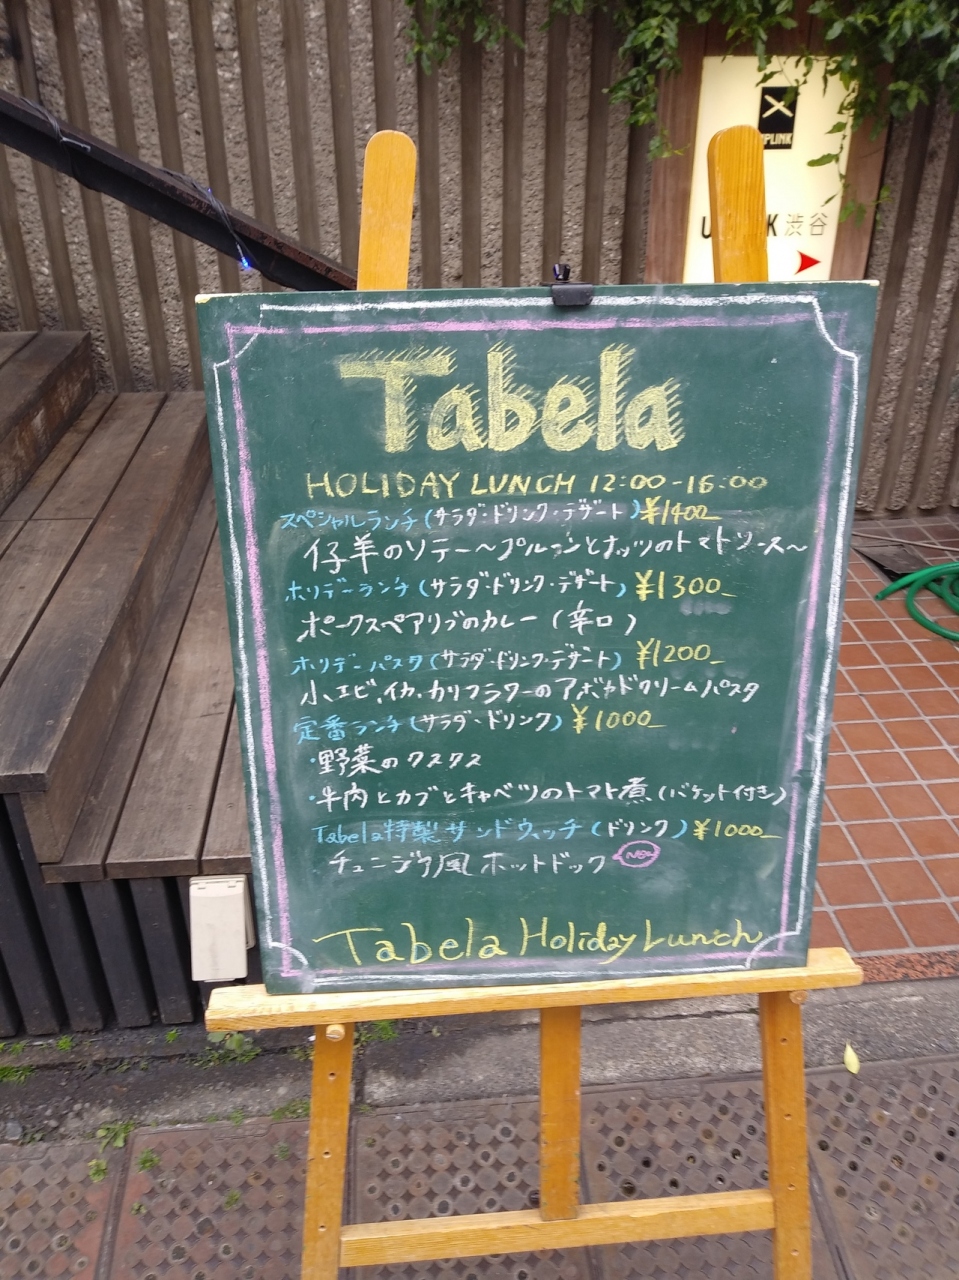 UPLINK
渋谷
Tabela
HOLIDAY LUNCH 12:00-16:00
スペシャルランチ(サラダ・ドリンク・デザート)¥1400_
仔羊のソテー〜プルーンとナッツのトマトソース〜
ホリデーランチ(サラダ・ドリンク・デザート)¥1300_
ポークスペアリブのカレー(辛口)
ホリデーパスタ(サラダ・ドリンク・デザート)¥1200_
小エビ,イカ,カリフラワーのアボカドクリームパスタ
定番ランチ(サラダ・ドリンク)¥1000_
・野菜のクスクス
・牛肉とカブとキャベツのトマト煮(バケット付き)
Tabela特製サンドウィッチ(ドリンク)¥1000_
チュニジア風ホットドック NEW
Tabela Holiday Lunch